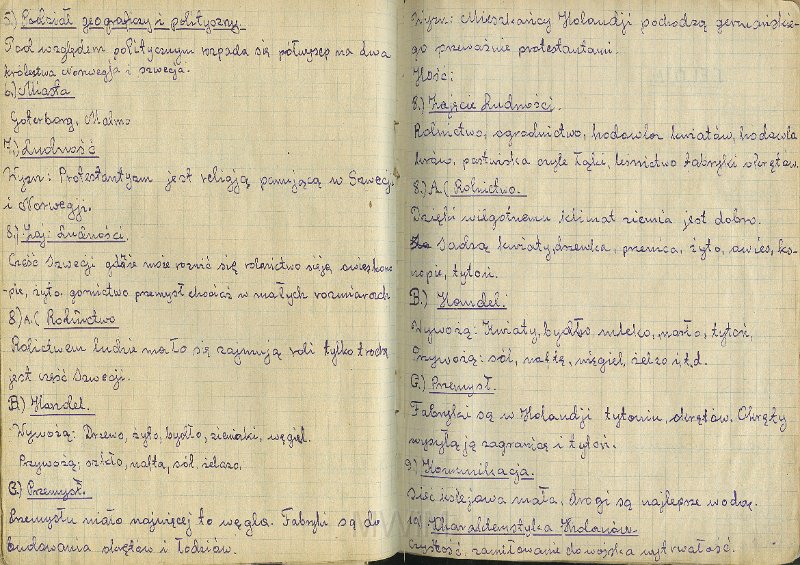 5.) Podział geograficzy i polityczny.
Pod względem politycznym rozpada się półwysep na dwa
królestwa Norwegja i szwecja.
6.) Miasta
Goterborg, Malmo
7.) Ludność
Wyzn: Protestantyzm jest religją panującą w Szwecji
i Norwegji.
8.) Zaj: Ludności.
Cześć Szwecji gdzie może roznić się rolnictwo sieją owies kono
-pie, żyto. gornictwo przemysł chociaż w małych rozmiarach
8.) A.( Rolnictwo
Rolictwem ludzie mało się zajmują roli tylko trochę
jest część Szwecji.
B.) Handel.
Wywożą: Drzewo, żyto, bydło, ziemiaki, węgiel.
Przywożą; szkło, nafta, sól, żelazo,
C.) Przemysł.
Przemysłu mało najwięcej to węgla. Fabryki są do
budowania okrętów i łodziów.
Wyzn: Mieszkańcy Holandji pochodzą germańskie-
go przeważnie protestantami.
Ilość:
8.) Zajęcie Ludności.
Rolnictwo, ogrodnictwo, hodowla kwiatów, hodowla
krów, pastwiska czyle Łąki, leśnictwo fabryki okrętów.
8.) A.( Rolnictwo.
Dzięki wilgotnemu klimat ziemia jest dobra.
Sadzą kwiaty, drzewka, przenica, żyto, owies, ko-
nopie, tytoń.
B.) Handel:
Wywożą: Kwiaty, bydło, mleko, masło, tytoń,
Przywożą: sól, naftę, węgiel, żelzo i.t.d.
C.) Przemysł.
Fabryki są w Holandji tytoniu, okrętów. Okręty
wysyłą ją zagranicę i tytoń.
9.) Komunikacja.
Sieć kolejowa mała, drogi są najlepsze wodą
10) Charakterystyka Holandów.
czystość, zamiłowanie do wojska wytrwałość.